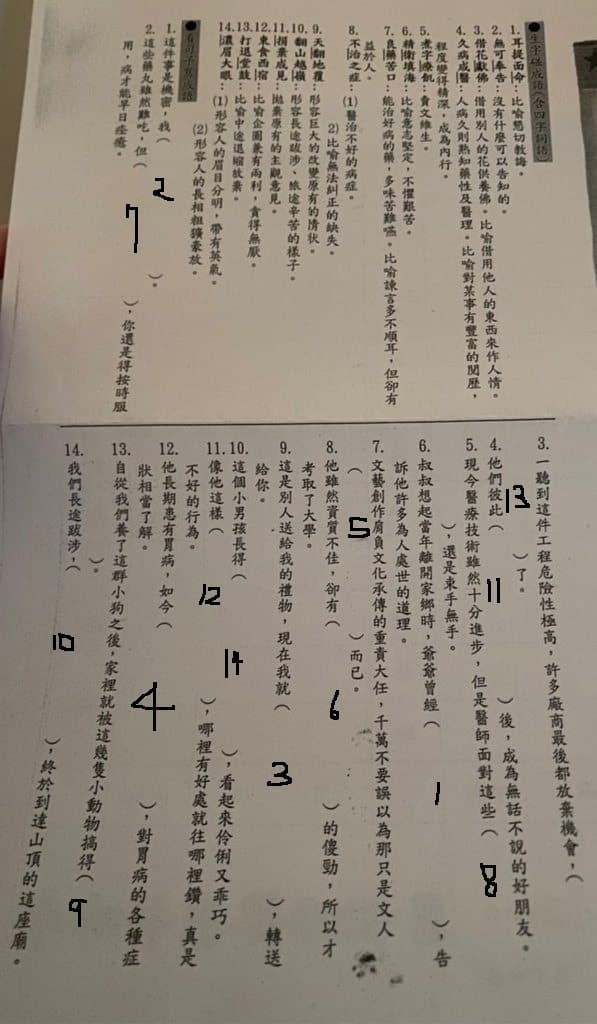 ●生字碰成語(含四字詞語)
1. 耳提面命：比喻懇切教誨。
2. 無可奉告：沒有什麼可以告知的。
3. 借花獻佛：借用別人的花供養佛。比喻借用他人的東西來作人情。
4. 久病成醫：人病久則熟知藥性及醫理。比喻對某事有豐富的閱歷，
程度變得精深，成為內行。
5. 煮字療飢：賣文維生。
6. 精衛填海：比喻意志堅定，不懼艱苦。
7. 良藥苦口：能治好病的藥，多味苦難嚥。比喻諫言多不順耳，但卻有
益於人。
8. 不治之症：(1)醫治不好的病症。
(2)比喻無法糾正的缺失。
9. 天翻地覆：形容巨大的改變原有的情狀。
10. 翻山越嶺：形容長途跋涉、旅途辛苦的樣子。
11. 摒棄成見：拋棄原有的主觀意見。
12. 東食西宿：比喻企圖兼有兩利，貪得無厭。
13. 打退堂鼓：比喻中途退縮放棄。
14. 濃眉大眼：(1)形容人的眉目分明，帶有英氣。
(2)形容人的長相粗獷豪放。
●看句子寫成語
1. 這件事是機密，我( 2 )。
2. 這些藥丸雖然難吃，但( 7 )，你還是得按時服
用，病才能早日痊癒。
3. 一聽到這件工程危險性極高，許多廠商最後都放棄機會，(
13 )了。
4. 他們彼此( 11 )後，成為無話不說的好朋友。
5. 現今醫療技術雖然十分進步，但是醫師面對這些( 8
)，還是束手無手。
6. 叔叔想起當年離開家鄉時，爺爺曾經( 1 )，告
訴他許多為人處世的道理。
7. 文藝創作肩負文化承傳的重責大任，千萬不要誤以為那只是文人
( 5 )而已。
8. 他雖然資質不佳，卻有( 6 )的傻勁，所以才
考取了大學。
9. 這是別人送給我的禮物，現在我就( 3 )，轉送
給你。
10. 這個小男孩長得( 14 )，看起來伶俐又乖巧。
11. 像他這樣( 12 )，哪裡有好處就往哪裡鑽，真是
不好的行為。
12. 他長期患有胃病，如今( 4 )，對胃病的各種症
狀相當了解。
13. 自從我們養了這群小狗之後，家裡就被這幾隻小動物搞得( 9
)。
14. 我們長途跋涉，( 10 )，終於到達山頂的這座廟。